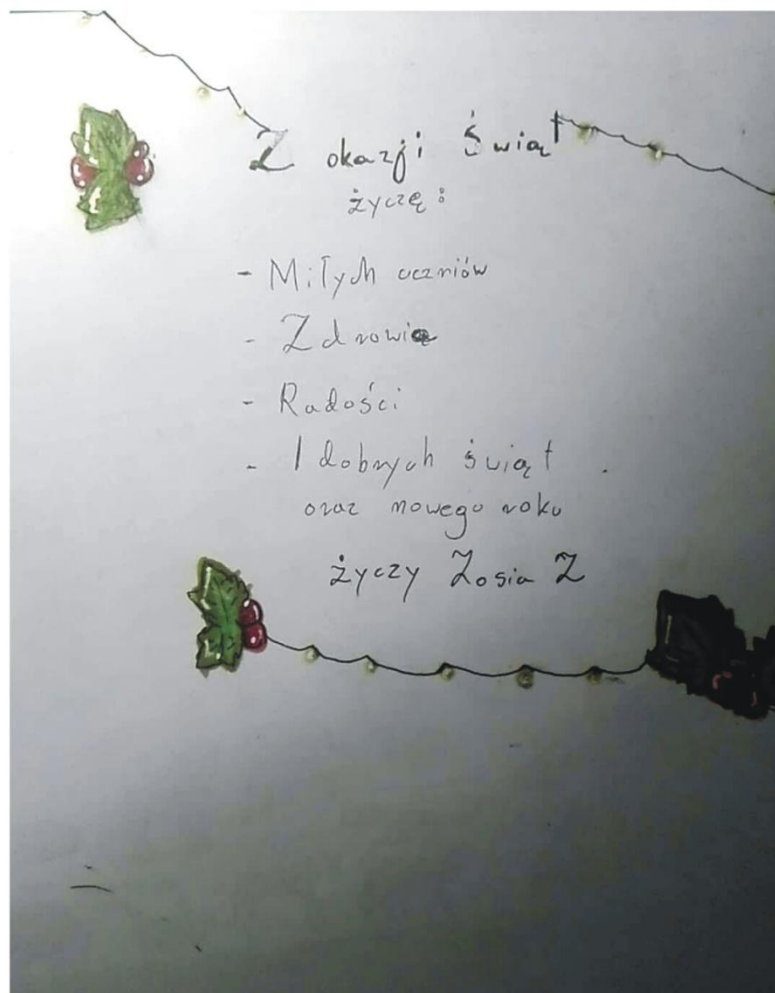 Z okazji świąt
życzę:
- Miłych uczniów
- Zdrowia
- Radości
- I dobrych świąt
oraz nowego roku
życzy Zosia Z